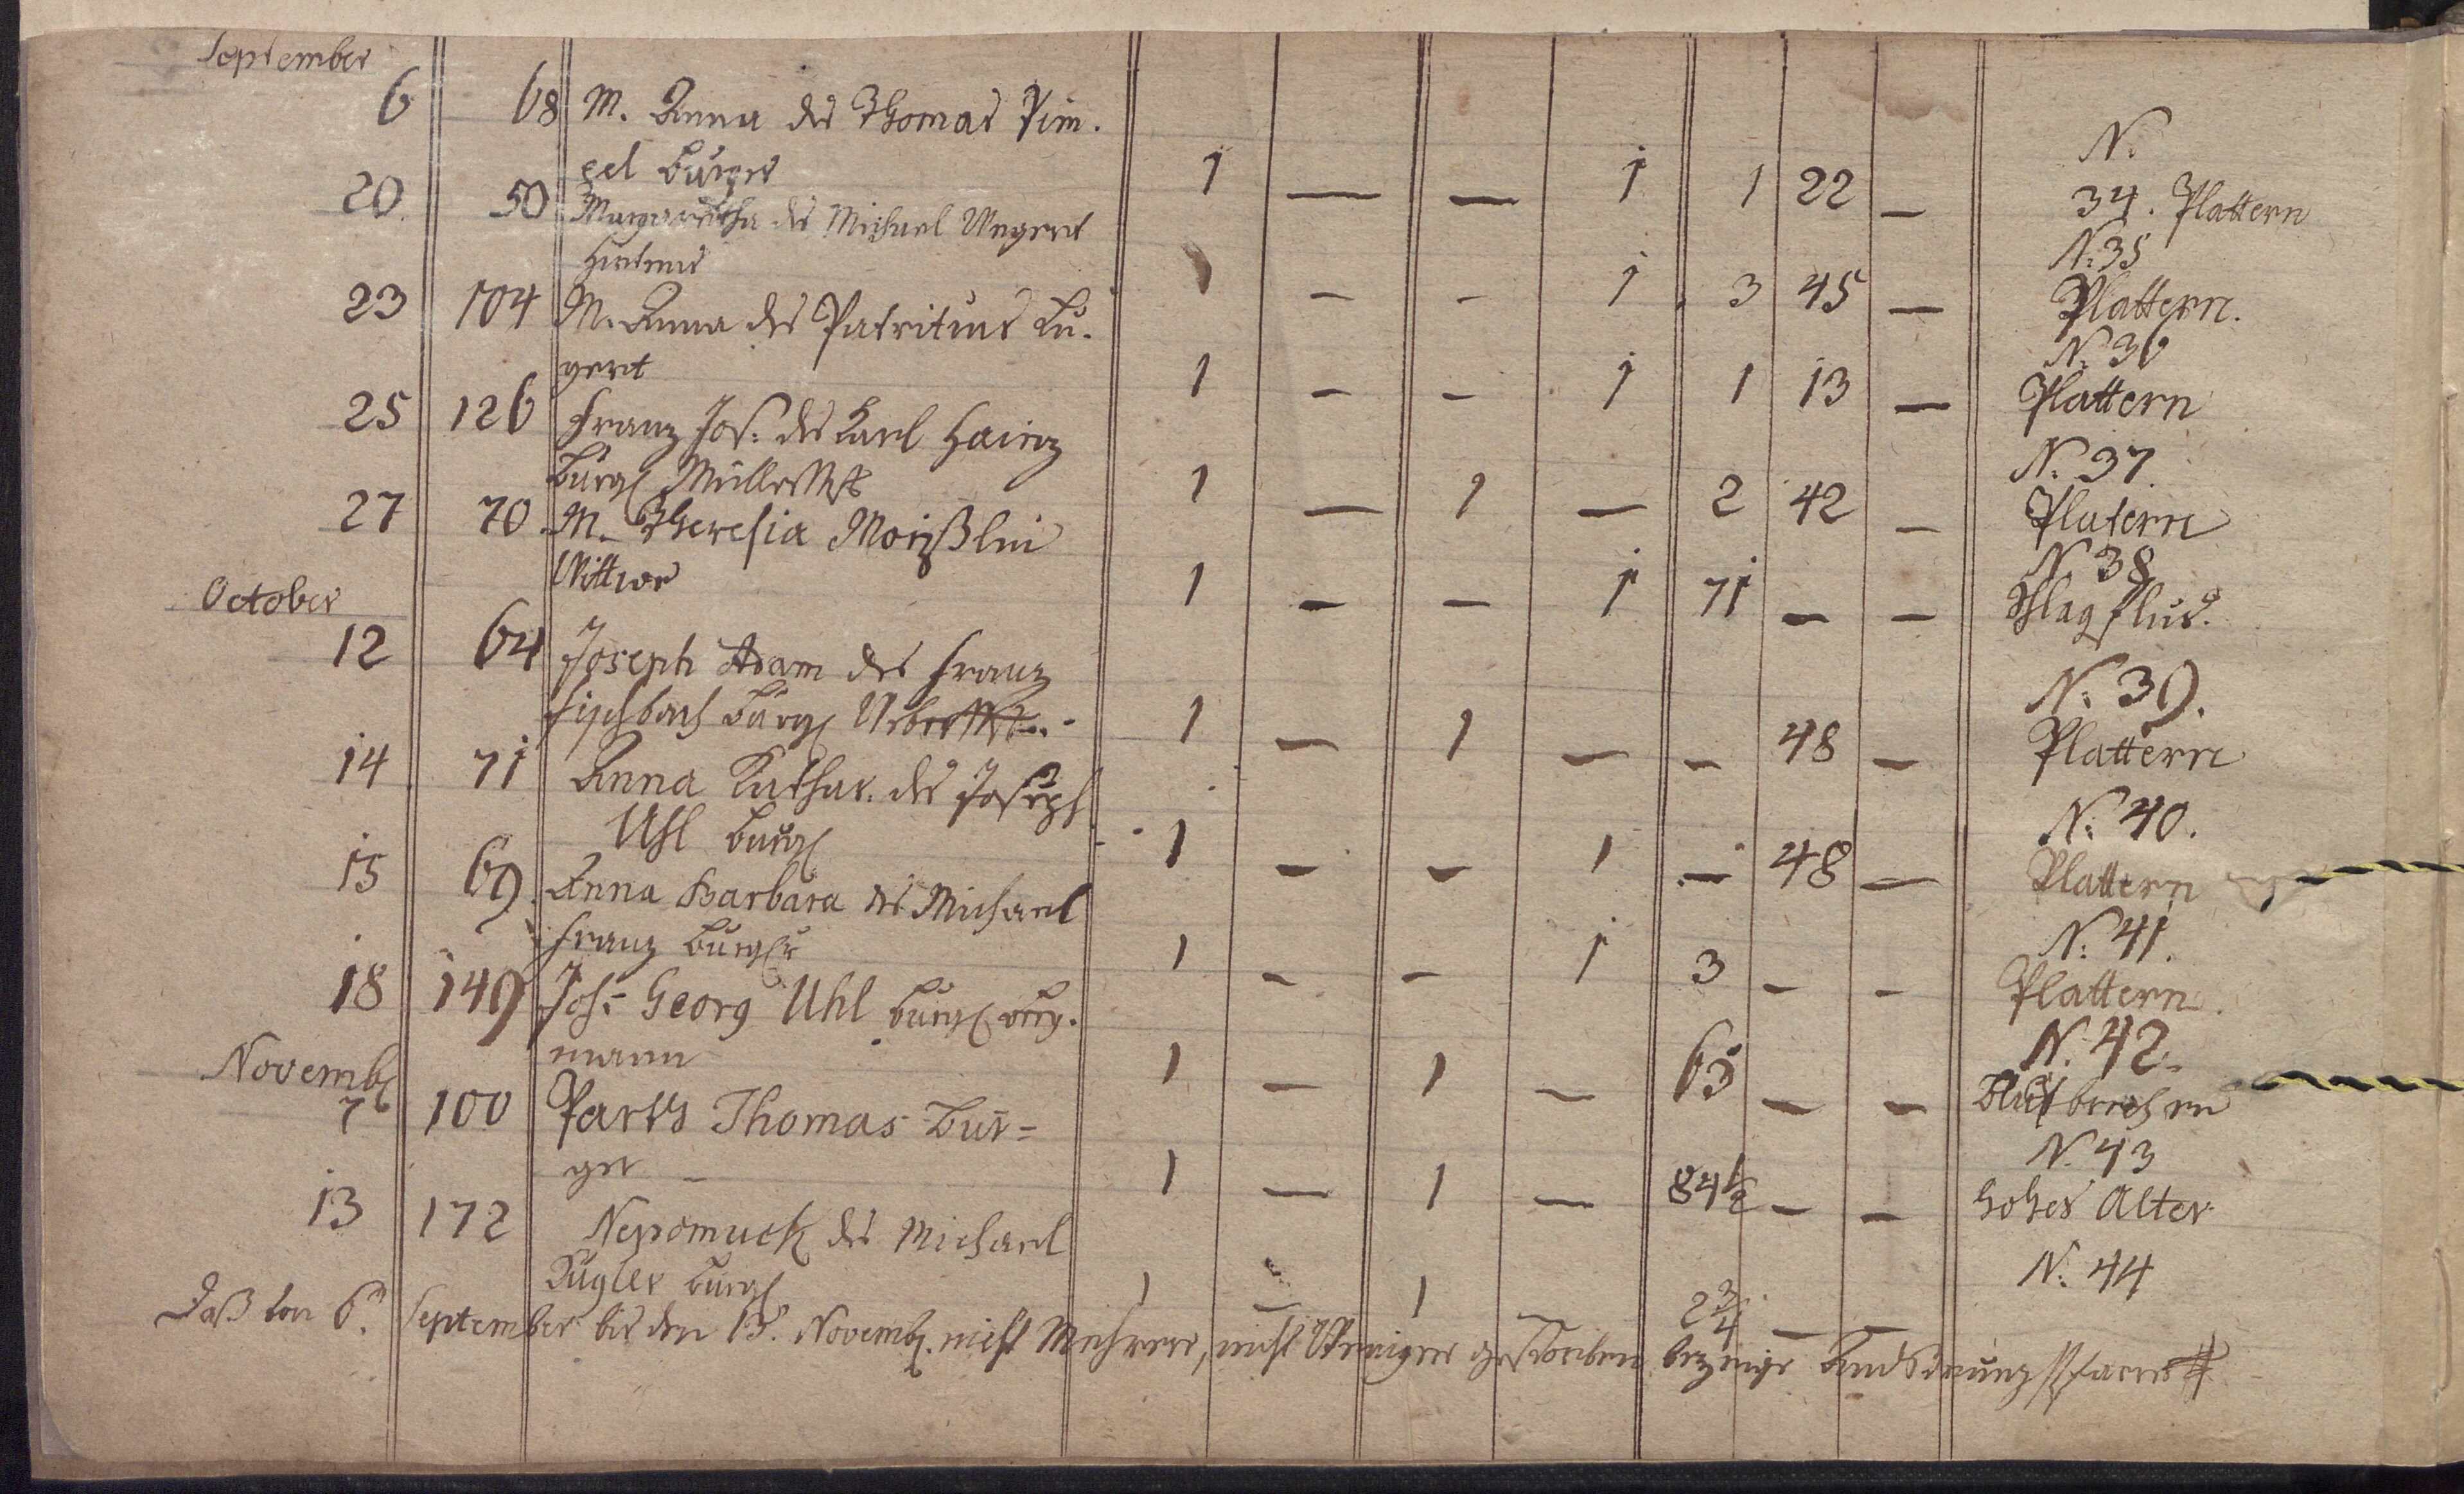 September
6 68 M. Anna des Thomas Pim.
pel Bürger 1 — — 1 1 22 — N. 34. Plattern
20. 50 Margaretha des Michael Ungert
1 — — 1 3 45 — N. 35 Plattern.
23 104 M. Anna des Patritius Lu.
gert 1 — — 1 1 13 — N. 36 Plattern
25 126 Franz Jos. des Karl Hainz
Bürgl Müller 1 — 1 — 2 42 — N. 37. Plattern
27 70 M. Theresia Moißlin
Wittwe 1 — — 1 71 — — N. 38 Schlagfluß.
October
12 64 Joseph Adam des Franz
Fischbach Bürgl 1 — 1 — — 48 — N. 39. Plattern
14 71 Anna Kathar. des Joseph
Uhl Bürgl 1 — — 1 — 48 — N. 40. Plattern
15 69. Anna Barbara des Michael
Franz Bürger 1 — — 1 3 — — N. 41. Plattern.
18 149 Joh: Georg Uhl Bürgl Berg.
mann 1 — 1 — 63 — — N. 42. Blutbrechen
Novemb
7 100 Thomas Bür=
ger — 1 — 1 — 84 1/2 — — N. 43 hohes Alter
13 172 Nepomuck des Michael
Kugler Bürgl 1 — 1 — 2 3/4 — — N. 44
Daß von 6. September bis den 13. Novemb. nicht Mehrere, nicht Weniger gestorben bezeuge